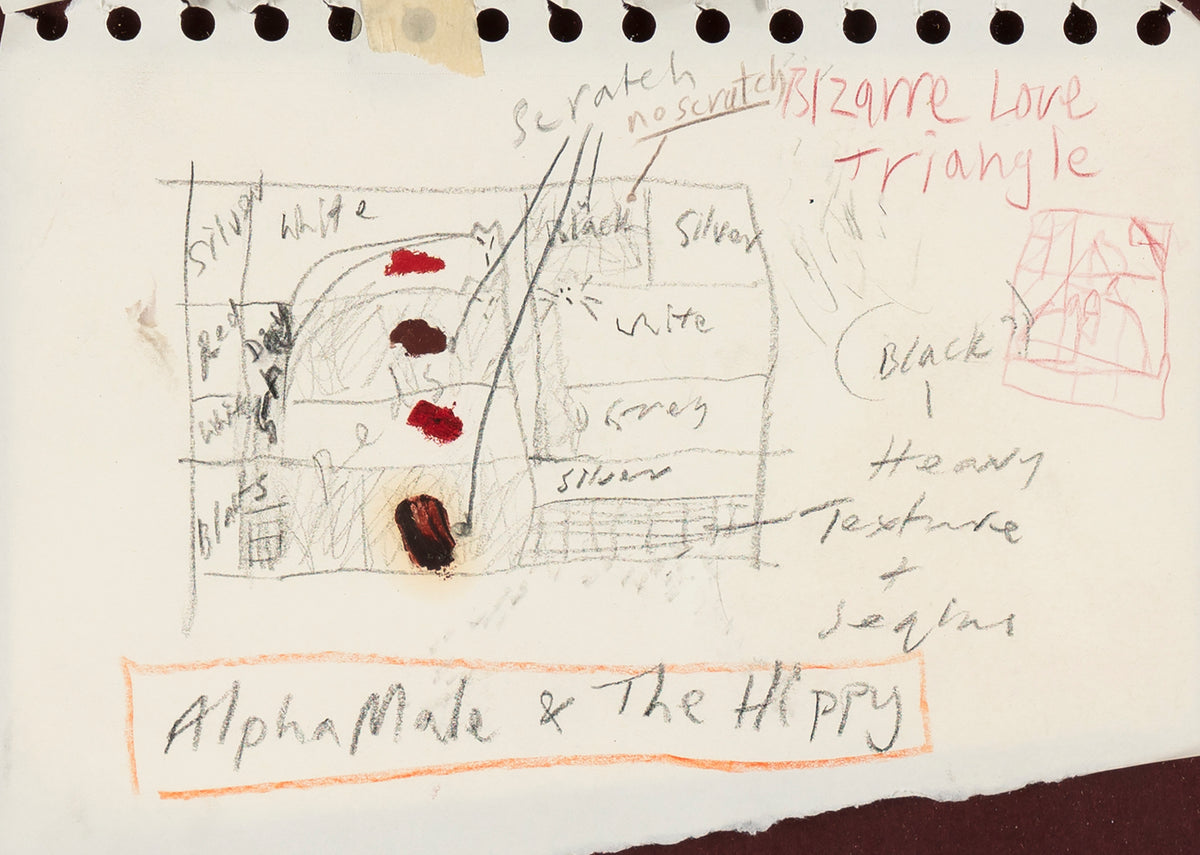 Scratch
no scratch
Bizarre Love
Triangle
Silver
White
Black
Silver
Red
White
(Black?)
White
Grey
Heavy
Silver
Texture
+
Sequins
Alpha Male & The Hippy